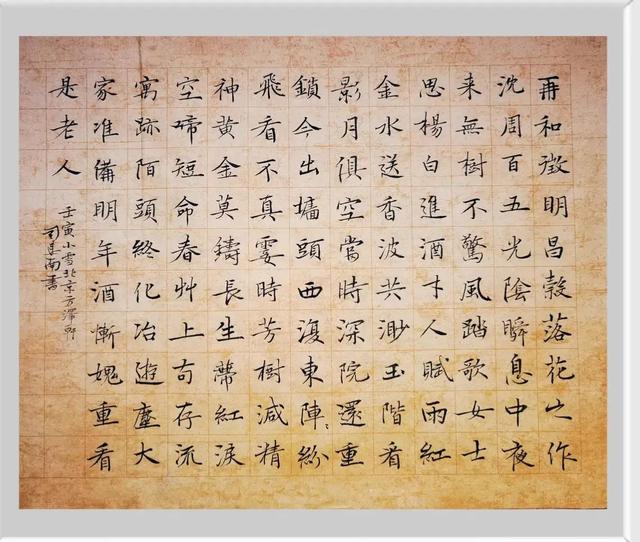 再和徵明昌穀落花之作
沈周百五光陰瞬息中夜
来無樹不驚風踏歌女士
思楊白進酒才人賦雨紅
金水送香波共渺玉階看
影月俱空當時深院還重
鎖今出墻頭西復東陣〻紛
飛看不真霎時芳樹減精
神黄金莫鑄長生蒂紅淚
空啼短命春艸上苟存流
寓跡陌頭終化冶遊塵大
家准備明年酒慚媿重看
是老人
壬寅小雪北京方澤邸
司馬南書